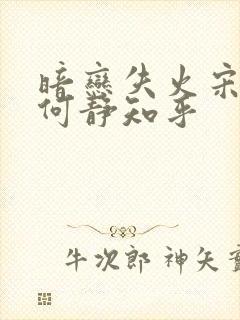 暗恋失火宋
何静知乎
牛次郎 神矢